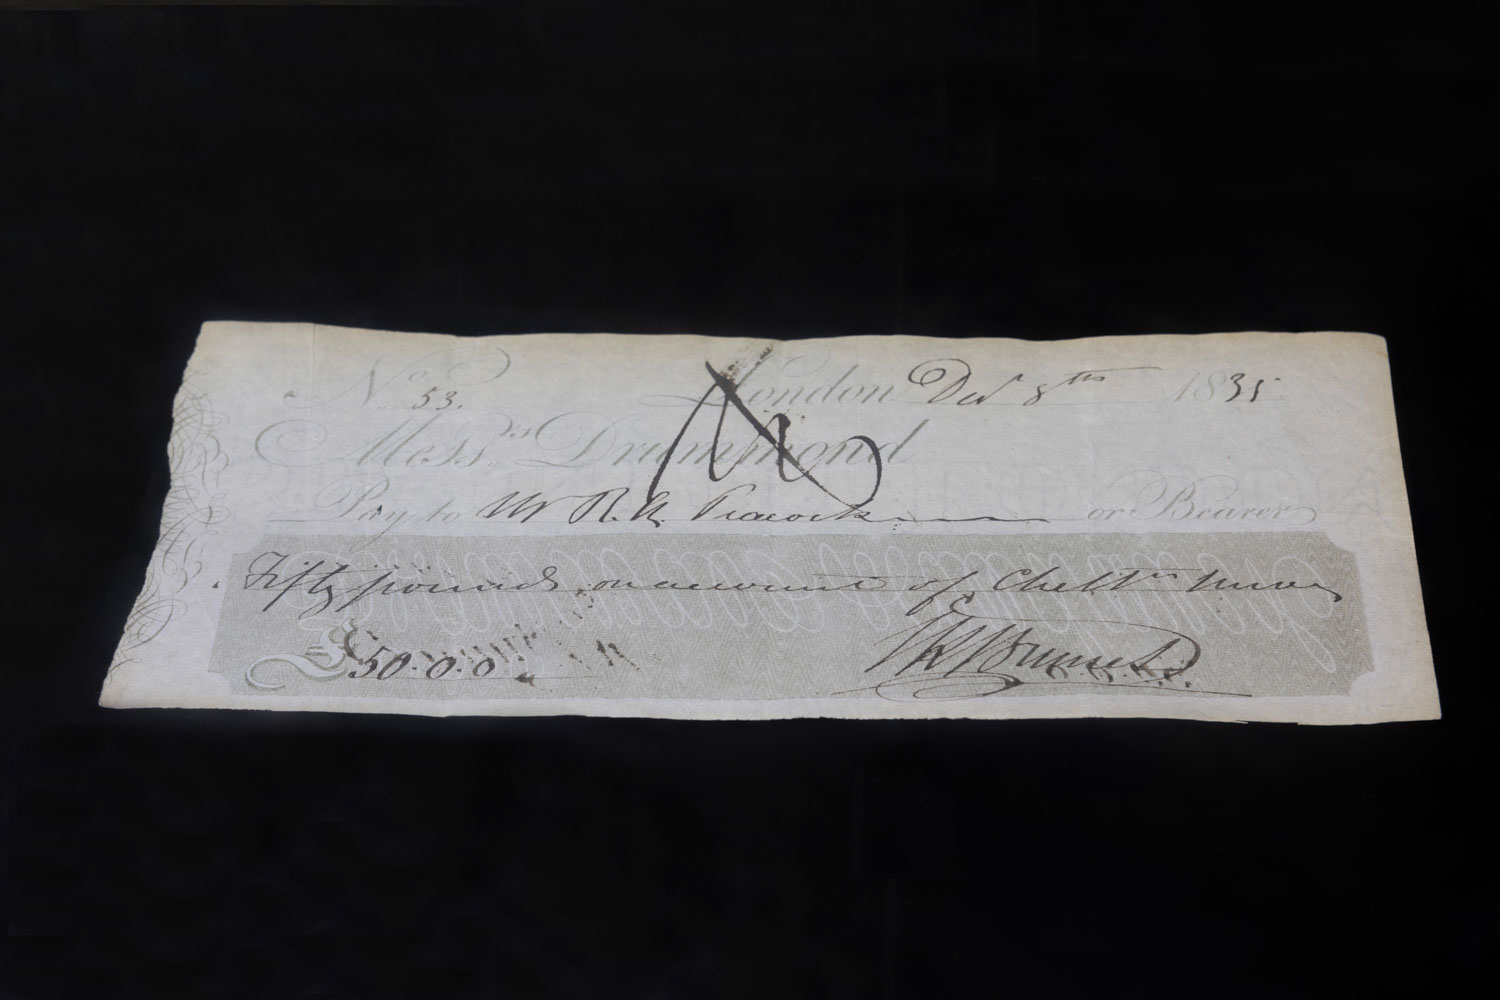 No. 53. London Decr 8th 1835
Messrs. Drummond
Pay to Mr R. A. Peacock or Bearer
Fifty pounds on account of Cheltm
£50.0.0 I K Brunel